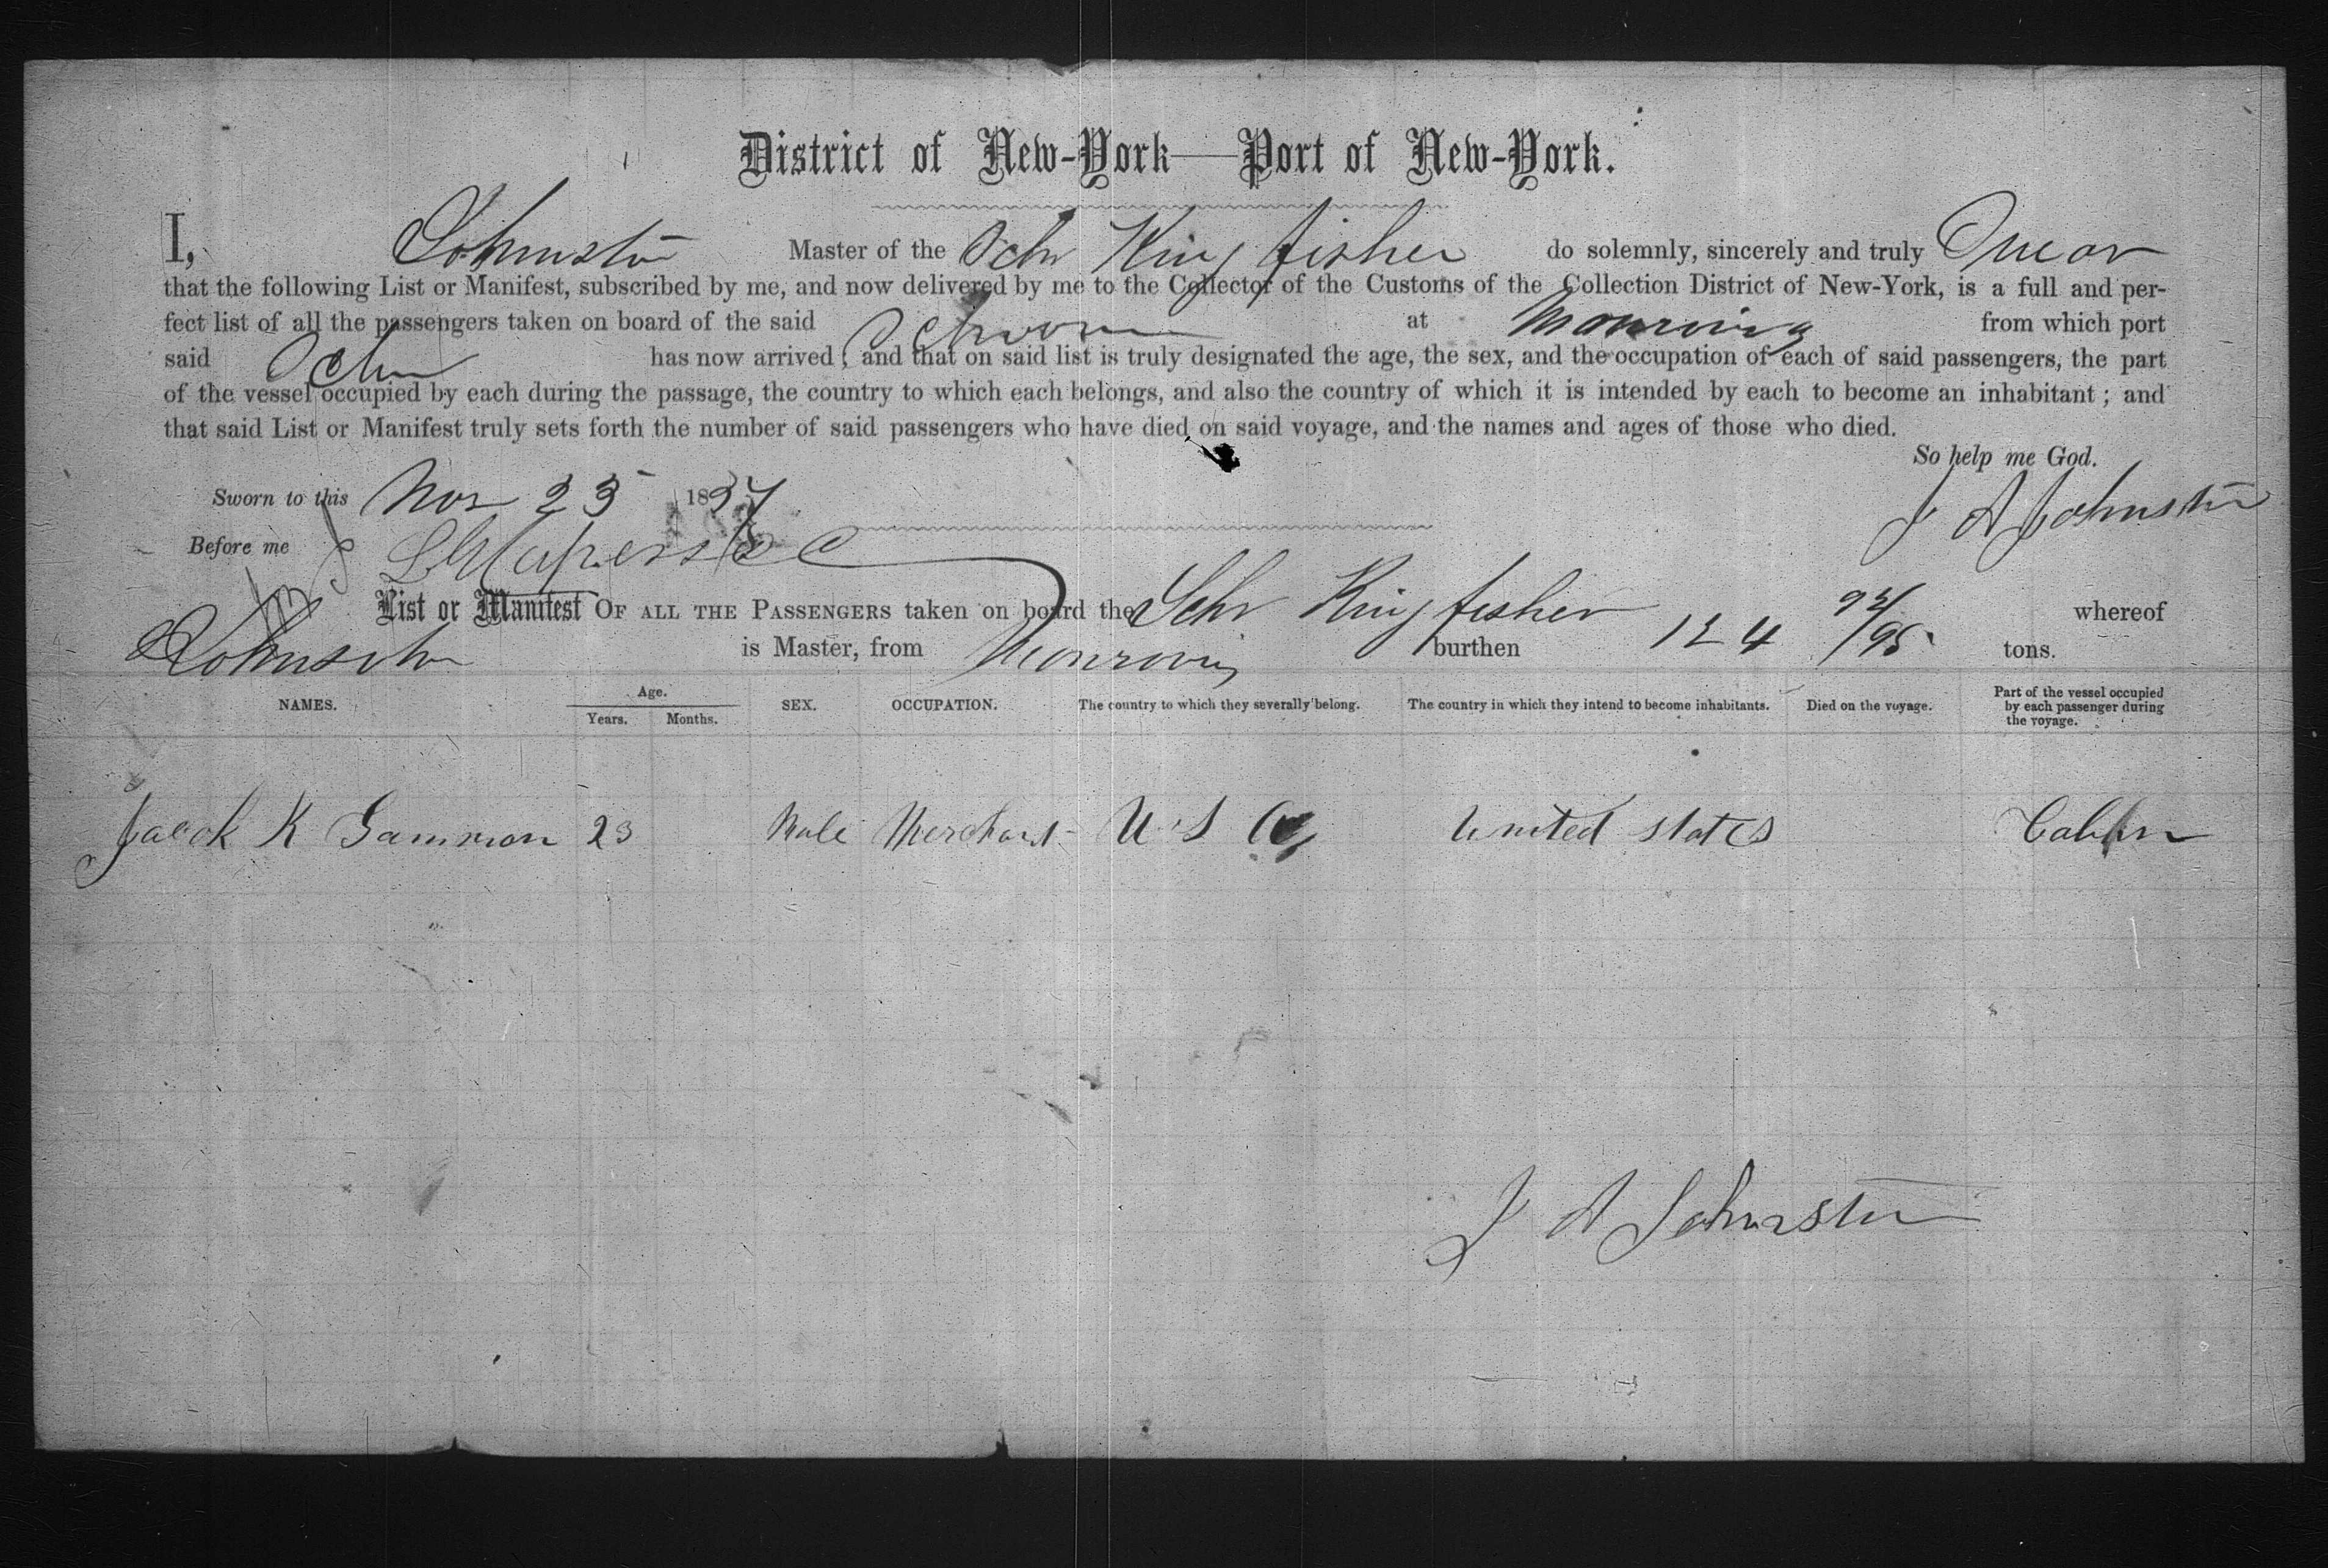 District of New-York—Port of New-York.
I, Johnston Master of the Schr King fisher do solemnly, sincerely and truly Swear
that the following List or Manifest, subscribed by me, and now delivered by me to the Collector of the Customs of the Collection District of New-York, is a full and per-
fect list of all the passengers taken on board of the said Schooner at Monrovia from which port
said Schr has now arrived; and that on said list is truly designated the age, the sex, and the occupation of each of said passengers, the part
of the vessel occupied by each during the passage, the country to which each belongs, and also the country of which it is intended by each to become an inhabitant; and
that said List or Manifest truly sets forth the number of said passengers who have died on said voyage, and the names and ages of those who died.
So help me God.
Sworn to this Nov 23 18
J A Johnston
Before me
List or Manifest OF ALL THE PASSENGERS taken on board the Schr King fisher whereof
Johnston is Master, from Monrovia burthen 124 /95 tons.
NAMES. Age. Years. Months. SEX. OCCUPATION. The country to which they severally belong. The country in which they intend to become inhabitants. Died on the voyage. Part of the vessel occupied by each passenger during the voyage.
K Gammon 23 Male Merchant U S A United states Cabin
J A Johnston